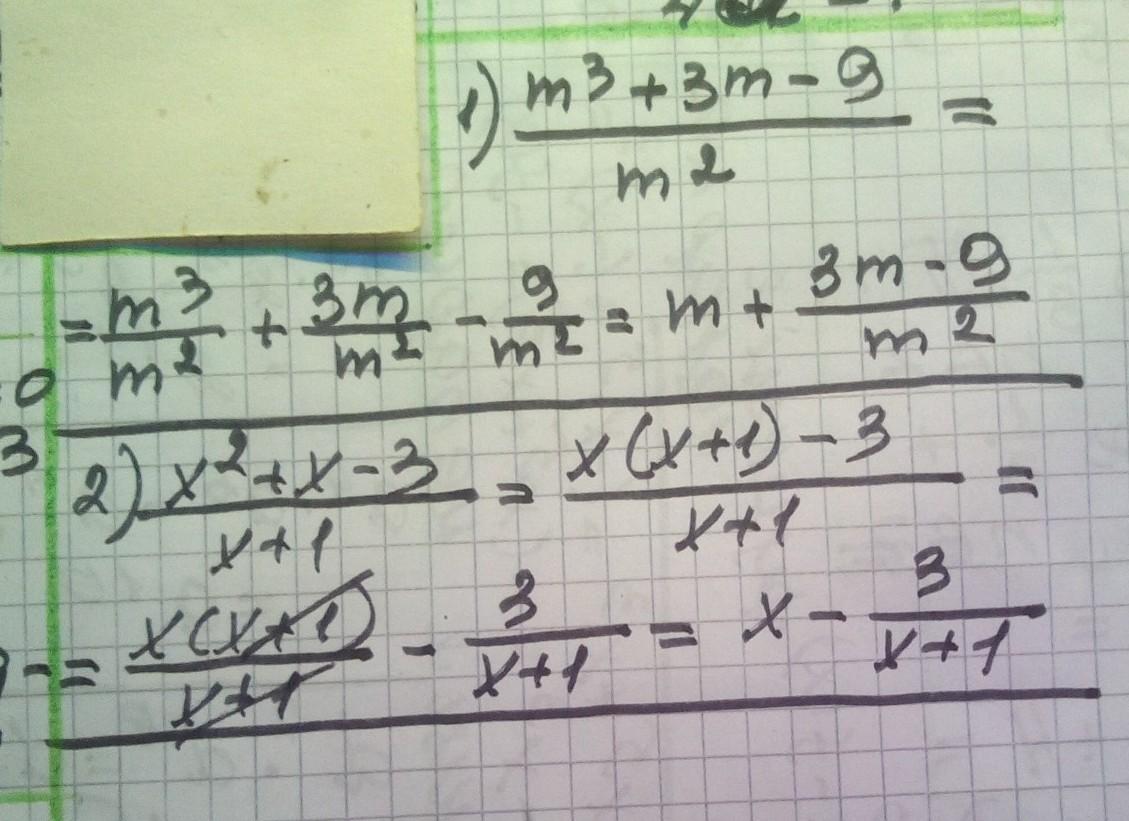 1) (m³ + 3m - 9)/m² =
= m³/m² + 3m/m² - 9/m² = m + (3m - 9)/m²
0
3
2) (x² + x - 3)/(x + 1) = (x(x + 1) - 3)/(x + 1) =
= x(x + 1)/(x + 1) - 3/(x + 1) = x - 3/(x + 1)